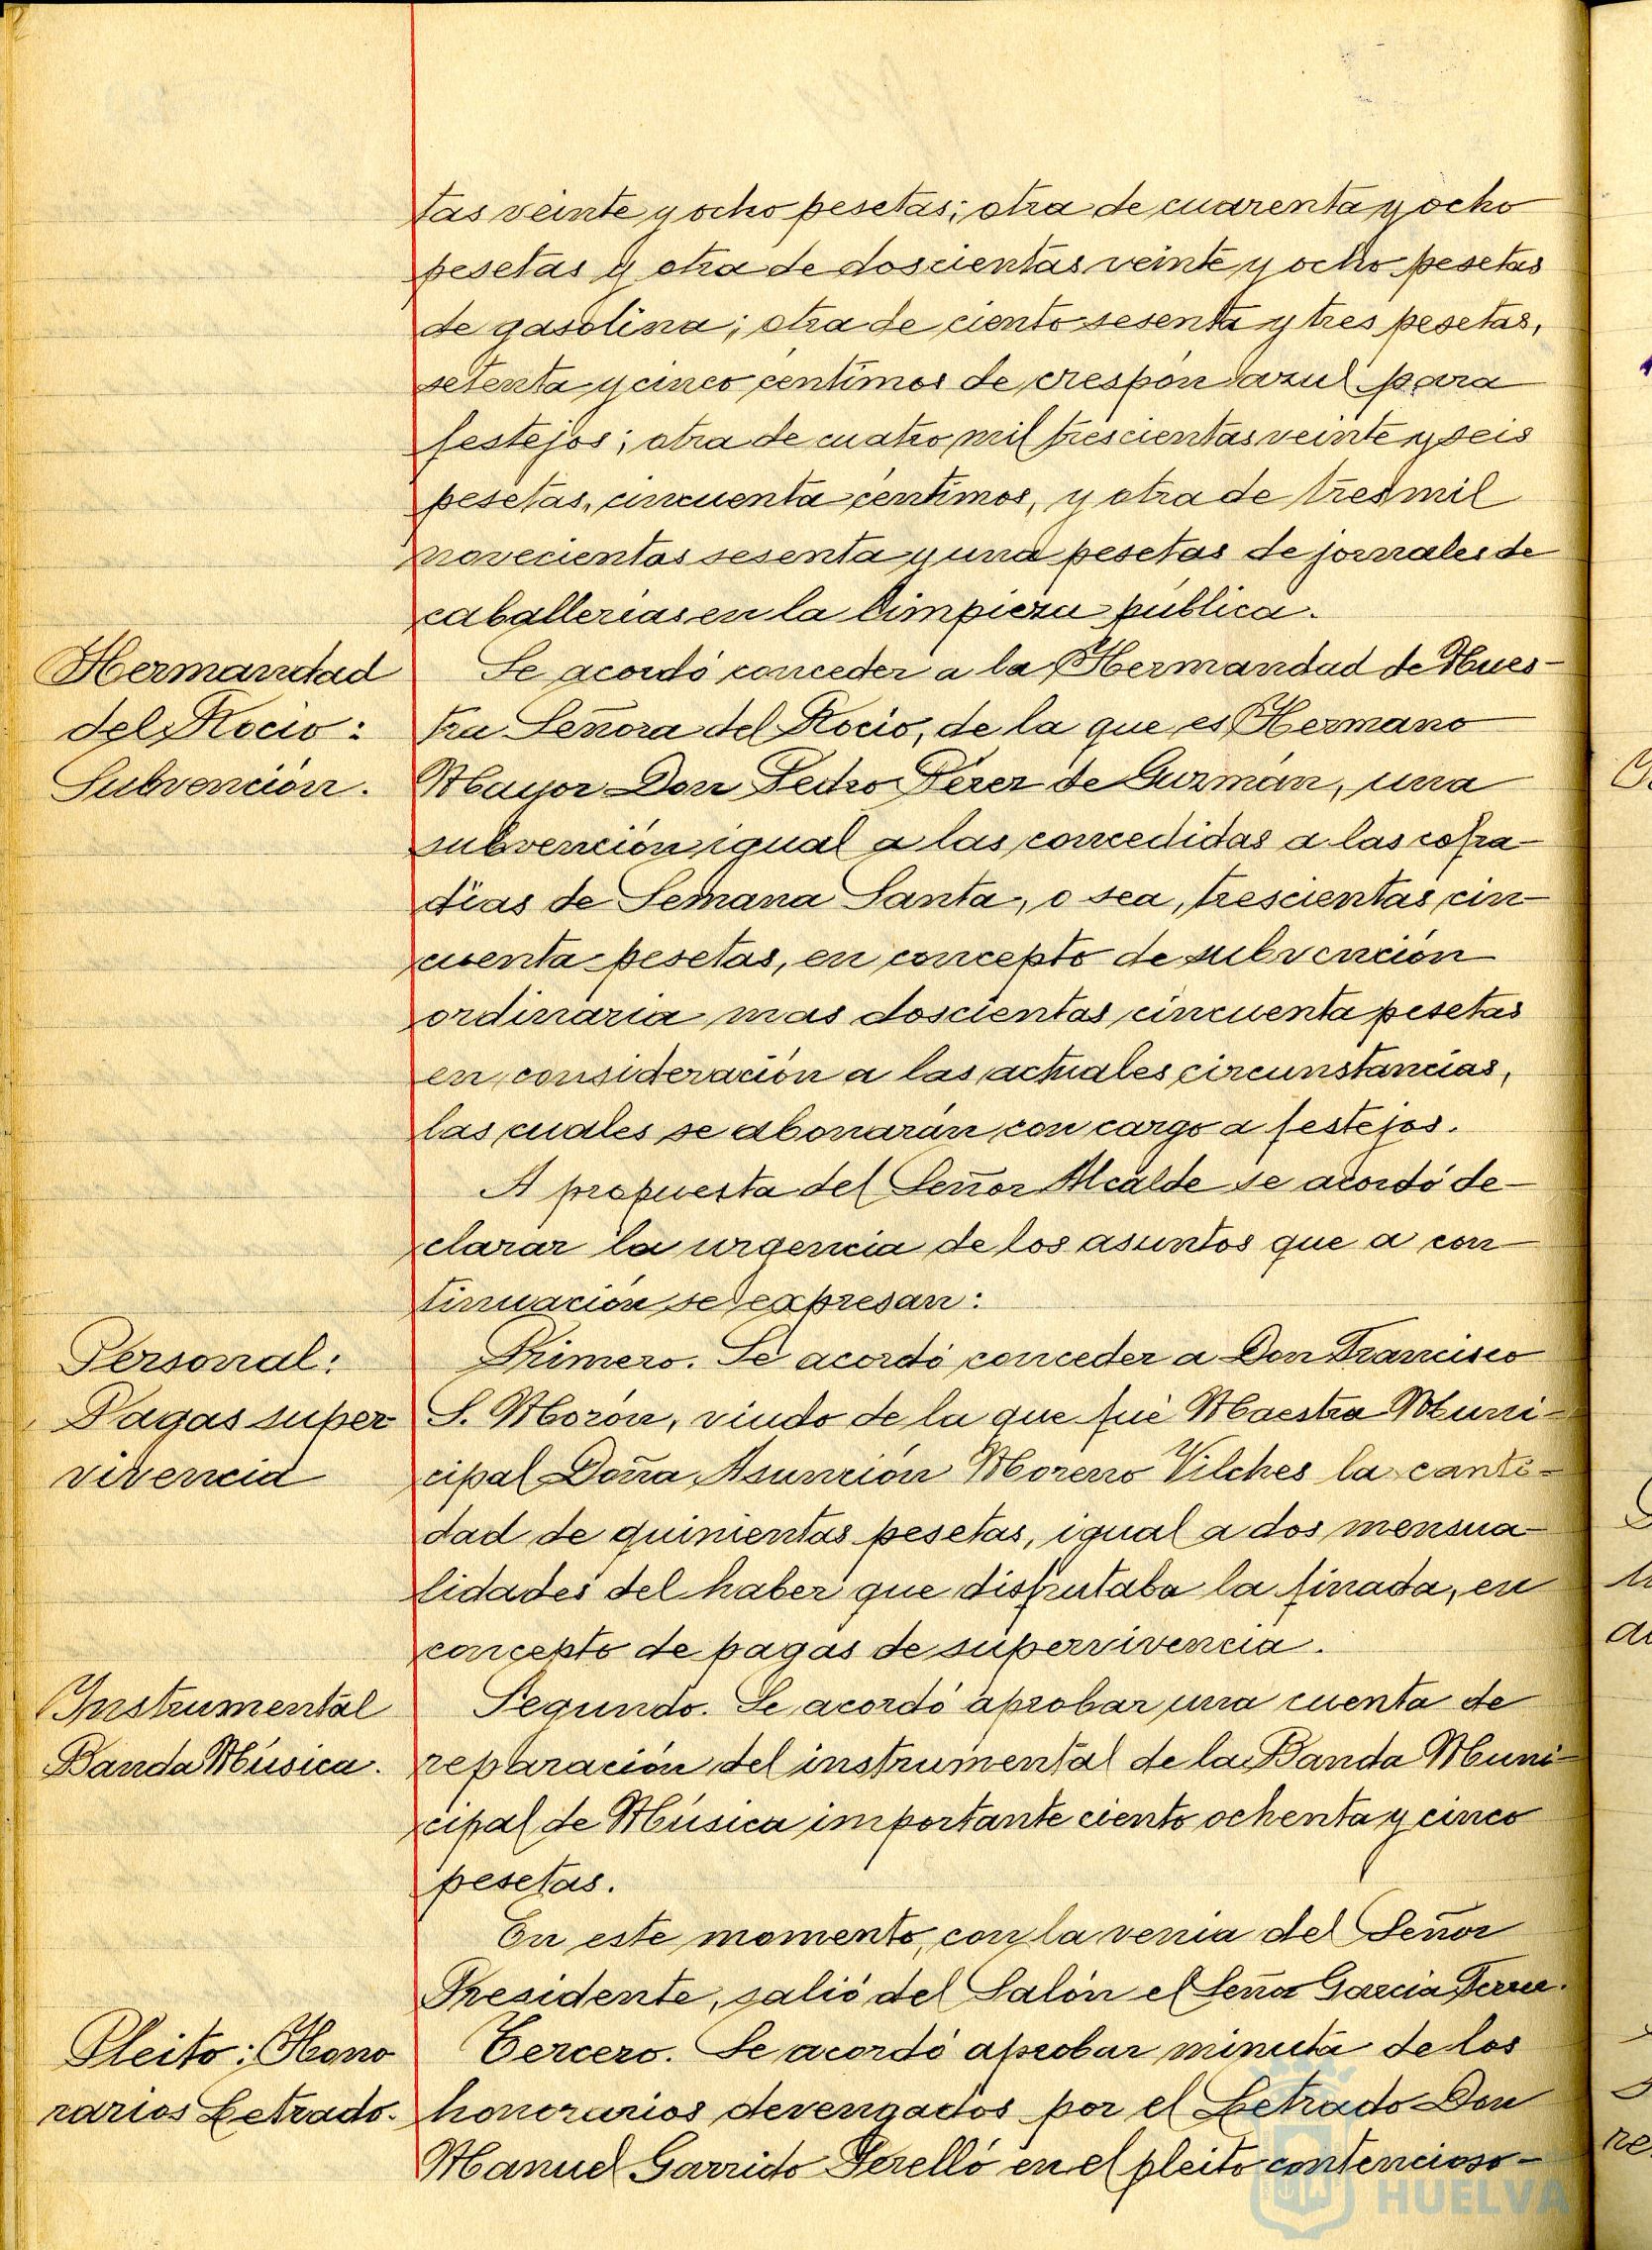 tas veinte y ocho pesetas; otra de cuarenta y ocho
pesetas y otra de doscientas veinte y ocho pesetas
de gasolina; otra de ciento sesenta y tres pesetas,
setenta y cinco céntimos de crespón azul para
festejos; otra de cuatro mil trescientas veinte y seis
pesetas, cincuenta céntimos, y otra de tres mil
novecientas sesenta y una pesetas de jornales de
caballerías en la limpieza pública.
Hermandad
del Rocio:
Subvención.
Se acordó conceder a la Hermandad de Nues-
tra Señora del Rocio, de la que es Hermano
Mayor Don Pedro Pérez de Guzmán, una
subvención igual a las concedidas a las cofra-
días de Semana Santa, o sea, trescientas cin-
cuenta pesetas, en concepto de subvención
ordinaria mas doscientas cincuenta pesetas
en consideración a las actuales circunstancias,
las cuales se abonarán con cargo a festejos.
A propuesta del Señor Alcalde se acordó de-
clarar la urgencia de los asuntos que a con
tinuación se expresan:
Personal:
Pagas super
vivencia
Primero. Se acordó conceder a Don Francisco
S. Morón, viudo de la que fué Maestra Muni-
cipal Doña Asunción Moreno Vilches la canti-
dad de quinientas pesetas, igual a dos mensua-
lidades del haber que disfrutaba la finada, en
concepto de pagas de supervivencia.
Instrumental
Banda Música.
Segundo. Se acordó aprobar una cuenta de
reparación del instrumental de la Banda Muni-
cipal de Música importante ciento ochenta y cinco
pesetas.
En este momento, con la venia del Señor
Presidente, salió del Salón el Señor García
Pleito: Hono
rarios Letrado.
Tercero. Se acordó aprobar minuta de los
honorarios devengados por el Letrado Don
Manuel Garrido Perelló en el pleito contencioso-
HUELVA